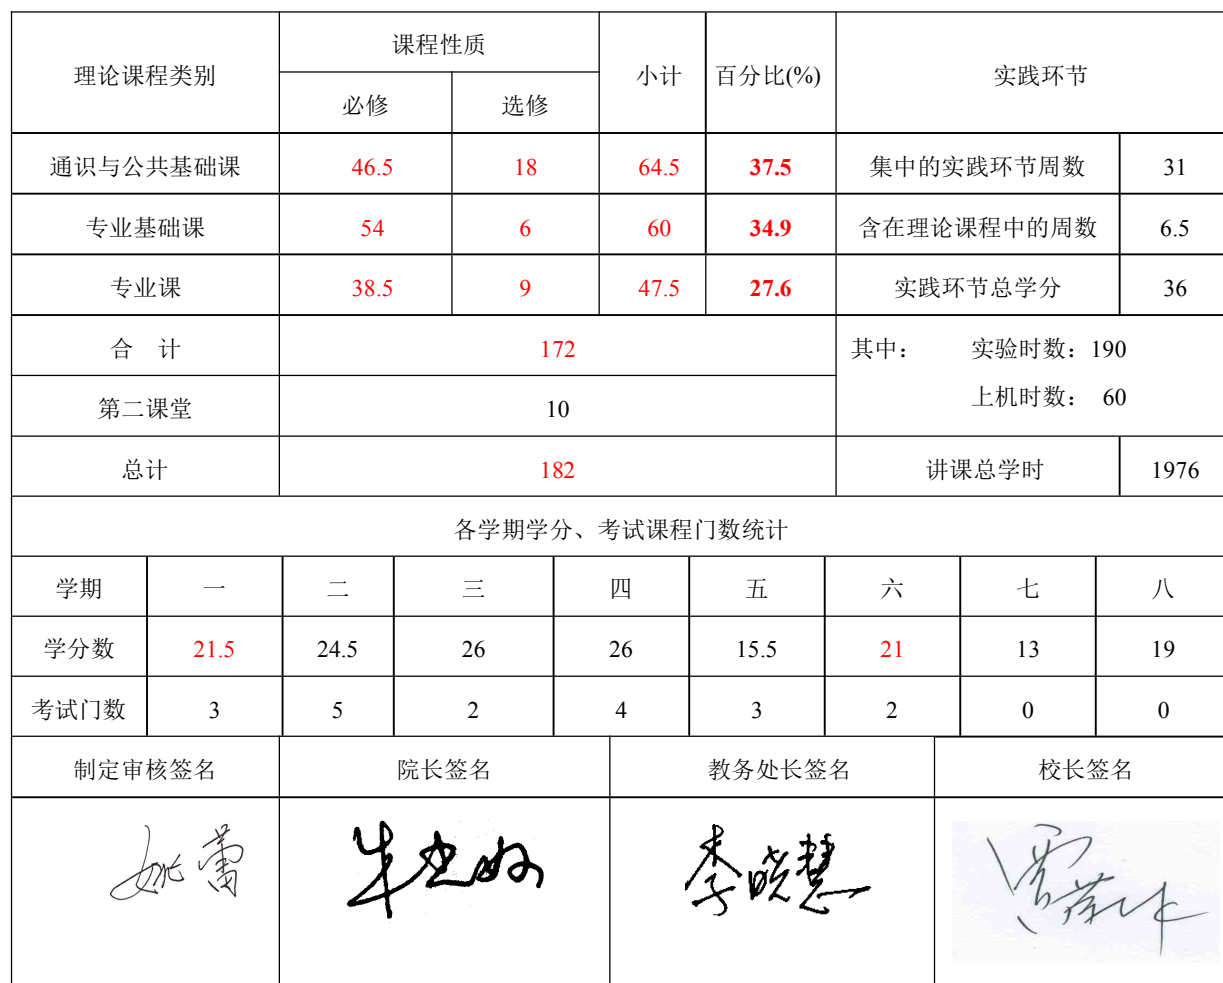 理论课程类别 课程性质 小计 百分比(%) 实践环节
必修 选修
通识与公共基础课 46.5 18 64.5 37.5 集中的实践环节周数 31
专业基础课 54 6 60 34.9 含在理论课程中的周数 6.5
专业课 38.5 9 47.5 27.6 实践环节总学分 36
合 计 172 其中: 实验时数:190
第二课堂 10 上机时数: 60
总计 182 讲课总学时 1976
各学期学分、考试课程门数统计
学期 一 二 三 四 五 六 七 八
学分数 21.5 24.5 26 26 15.5 21 13 19
考试门数 3 5 2 4 3 2 0 0
制定审核签名 院长签名 教务处长签名 校长签名
姚蕾 李晓慧